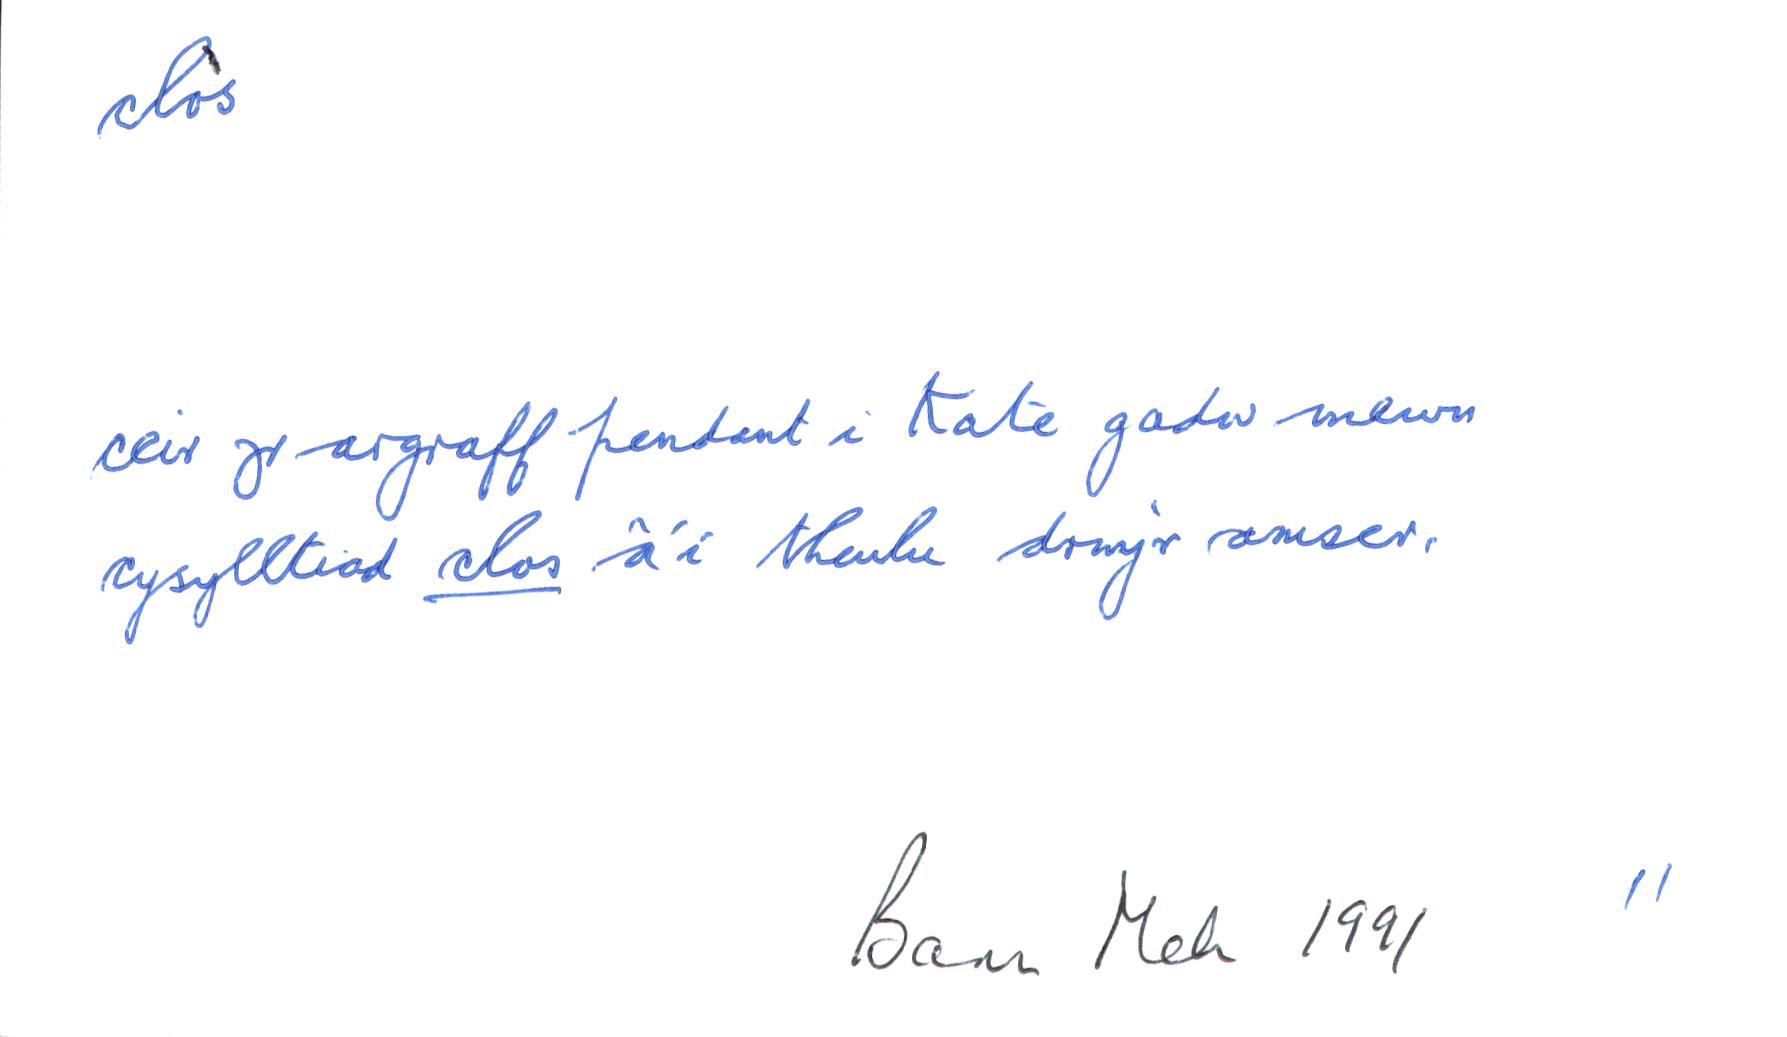 clòs
ceir yr argraff pendant i Kate gadw mewn
cysylltiad clos â'i theulu drwy'r amser.
Barn Meh 1991 11